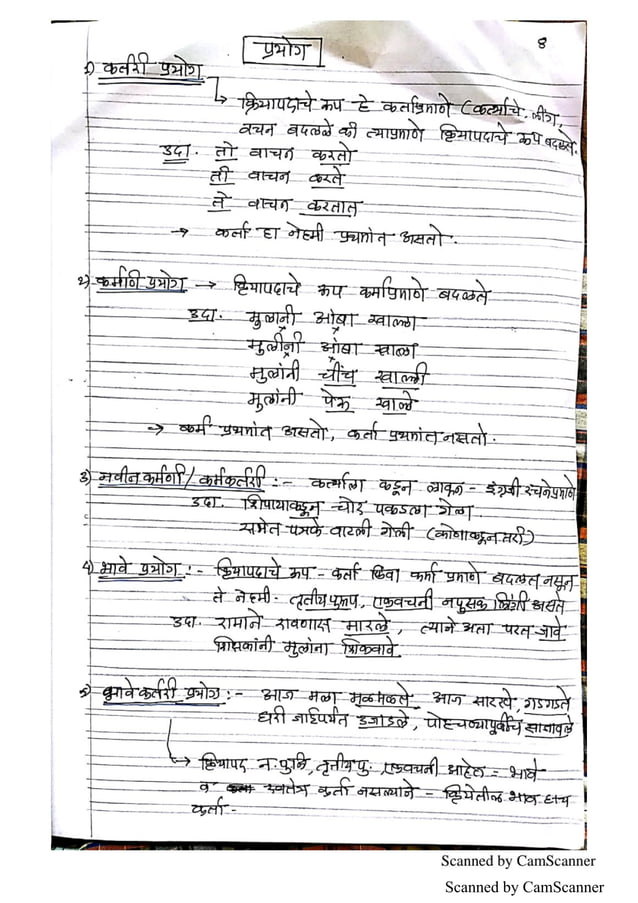 प्रयोग
8
१) कर्तरी प्रयोग
↳ क्रियापदाचे रूप हे कर्ताप्रमाणे (कर्त्याचे लींग,
वचन बदलले की त्याप्रमाणे क्रियापदाचे रूप बदलते.
उदा. तो वाचन करतो
ती वाचन करते
ते वाचन करतात
→ कर्ता हा नेहमी प्रथमांत असतो.
२) कर्मणी प्रयोग → क्रियापदाचे रूप कर्माप्रमाणे बदलते
उदा. मुलानी आंबा खाल्ला
मुलींनी आंबा खाला
मुलांनी चींच खाल्ली
मुलांनी पेरू खाल्ले
→ कर्म प्रथमांत असतो, कर्ता प्रथमांत नसतो.
३) नवीन कर्मणी / कर्मकर्तरी :- कर्त्याला कडून लावून - इंग्रजी रचनेप्रमाणे
उदा. शिपायाकडून चोर पकडला गेला
सभेत पत्रके वाटली गेली (कोणाकडून तरी)
४) भावे प्रयोग :- क्रियापदाचे रूप - कर्ता किंवा कर्मा प्रमाणे बदलत नसून
ते नेहमी तृतीय पुरूष, एकवचनी नपुसक लिंगी असते
उदा. रामाने रावणास मारले, त्याने अता परत जावे
शिक्षकांनी मुलांना शिकवावे
५) भावे कर्तरी प्रयोग :- आज मला मळमळते आज सारखे, गडगडते
घरी जाईपर्यंत उजाडले, पोहचण्यापूर्वीच सांजावले
↳ क्रियापद न.पुलिं, तृतीय पु. एकवचनी आहेत = भावे
व स्वतंत्र कर्ता नसल्याने - क्रियेतील भाव हाच
कर्ता -
Scanned by CamScanner
Scanned by CamScanner